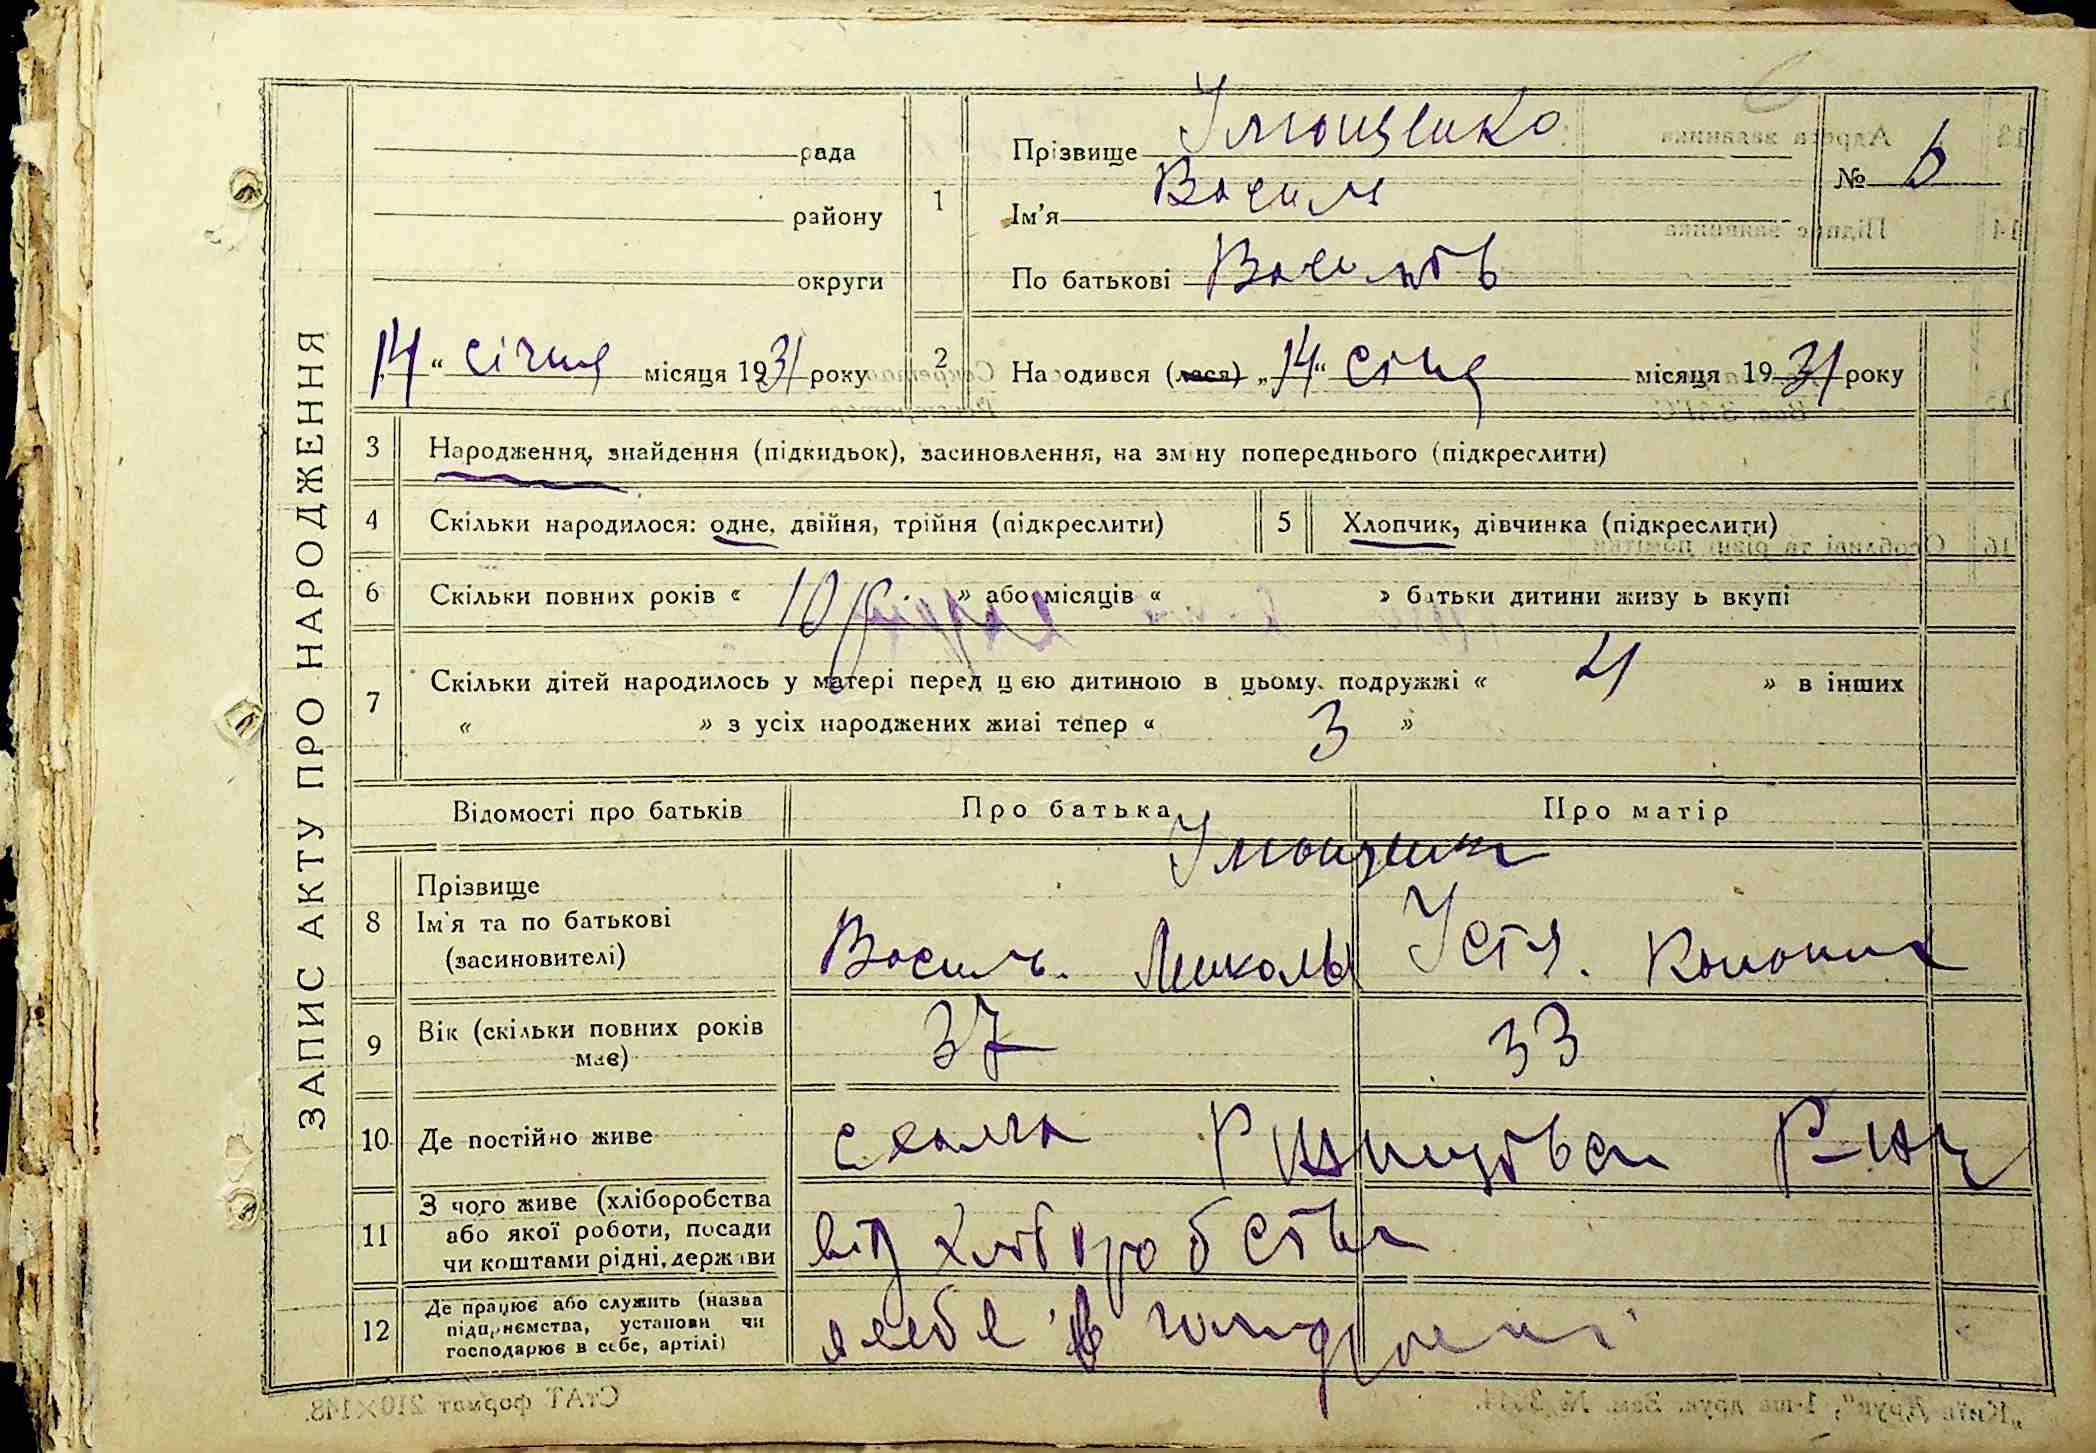 ЗАПИС АКТУ ПРО НАРОДЖЕННЯ
рада
району
округи
„14“ січня місяця 1931 року
1
Прізвище Умощенко
Ім'я Василь
По батькові Васильов
№ 6
2 Народився (лася) „14“ січня місяця 1931 року
3 Народження, знайдення (підкидьок), засиновлення, на зміну попереднього (підкреслити)
4 Скільки народилося: одне, двійня, трійня (підкреслити)
5 Хлопчик, дівчинка (підкреслити)
6 Скільки повних років « 10 р. » або місяців « » батьки дитини живуть вкупі
7 Скільки дітей народилось у матері перед цією дитиною в цьому подружжі « 4 » в інших
« » з усіх народжених живі тепер « 3 »
Відомості про батьків Про батька Про матір
8 Прізвище
Ім'я та по батькові
(засиновителі)
Умощенко
Василь Миколь Устя Конони
9 Вік (скільки повних років має)
37 33
10 Де постійно живе
Ржищівськ р-ну
11 З чого живе (хліборобства
або якої роботи, посади
чи коштами рідні, держави
від хліборобства
12 Де працює або служить (назва
підприємства, установи чи
господарює в себе, артілі)
в
СтАТ формат 210×148.
„Київ-Друк“, 1-ша друк. Зам. №